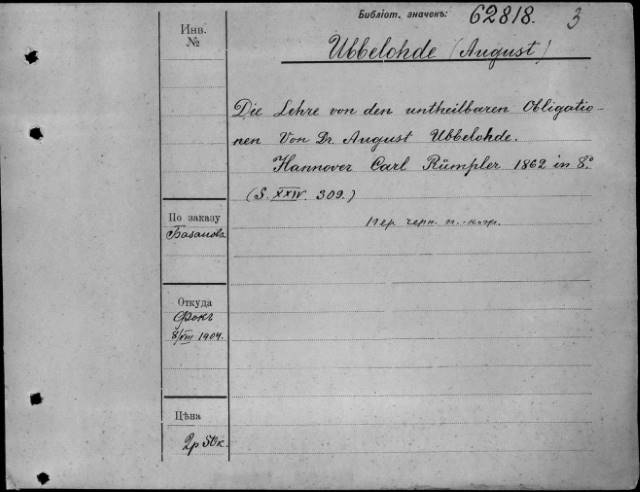 Библіот. значекъ: 62818. 3
Инв.
№
Ubbelohde (August)
Die Lehre von den untheilbaren Obligatio-
nen Von Dr. August Ubbelohde.
Hannover Carl Rümpler 1862 in 8.°
(S. XXIV. 309.)
По заказу
Базанова
пер. черн. п.-кор.
Откуда
Фокъ
8/VIII 1904.
Цѣна
2р 50к.